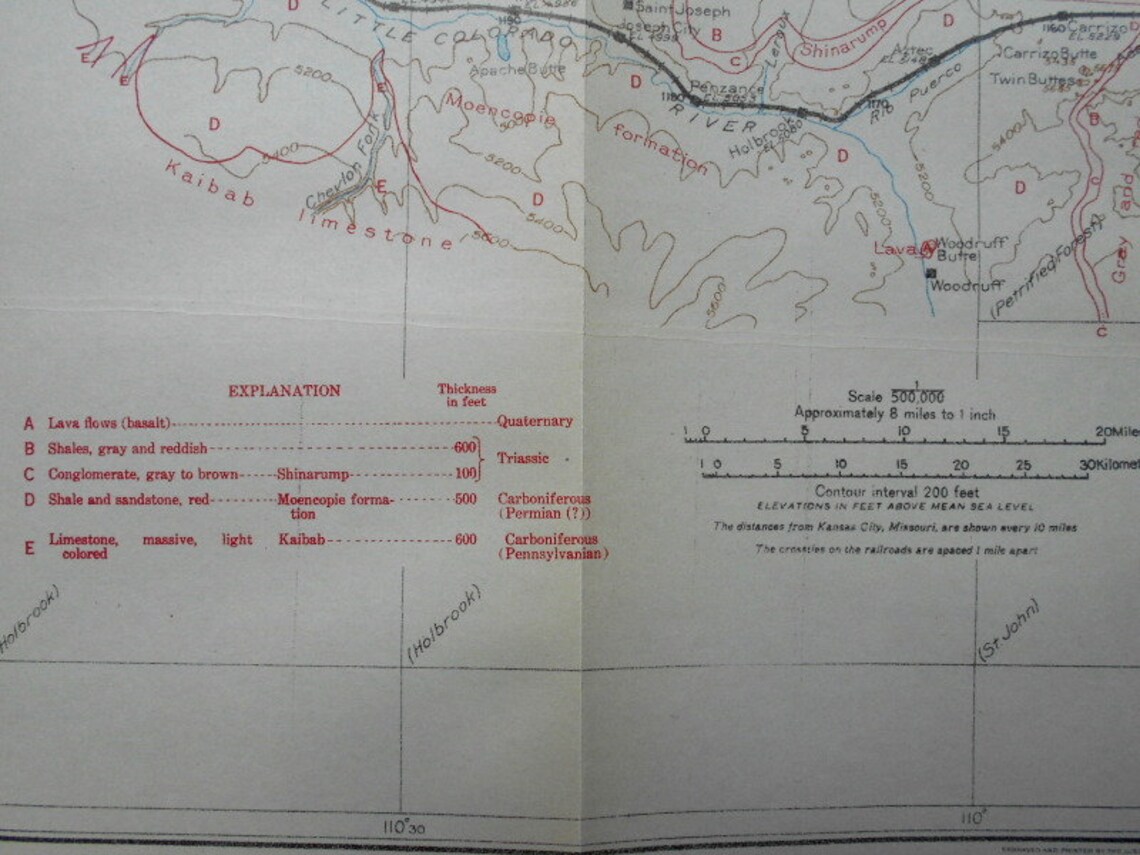 D
LITTLE COLORADO
1190
Saint Joseph
Joseph City
B
C
Leroux
Shinarump
D
1160
Carrizo
EL 5229
Aztec
Carrizo Butte
Twin Buttes
E
E
E
5200
Apache Butte
D
Penzance
1180
1170
Rio Puerco
D
Moencopie formation
RIVER
Holbrook
5400
5200
5400
B
Kaibab limestone
Chevlon Fork
E
D
D
D
5200
5400
5200
C
Gray and
5600
Lava A
Woodruff
Butte
Woodruff
(Petrified Forest)
5600
C
EXPLANATION
Thickness
in feet
A Lava flows (basalt) Quaternary
B Shales, gray and reddish 600
Triassic
C Conglomerate, gray to brown Shinarump 100
D Shale and sandstone, red Moencopie forma- 500 Carboniferous
tion (Permian (?))
E Limestone, massive, light Kaibab 600 Carboniferous
colored (Pennsylvanian)
Scale 1/500,000
Approximately 8 miles to 1 inch
1 0 5 10 15 20 Mile
1 0 5 10 15 20 25 30 Kilomet
Contour interval 200 feet
ELEVATIONS IN FEET ABOVE MEAN SEA LEVEL
The distances from Kansas City, Missouri, are shown every 10 miles
The crossties on the railroads are spaced 1 mile apart
Holbrook)
(Holbrook)
(St John)
110°30
110°